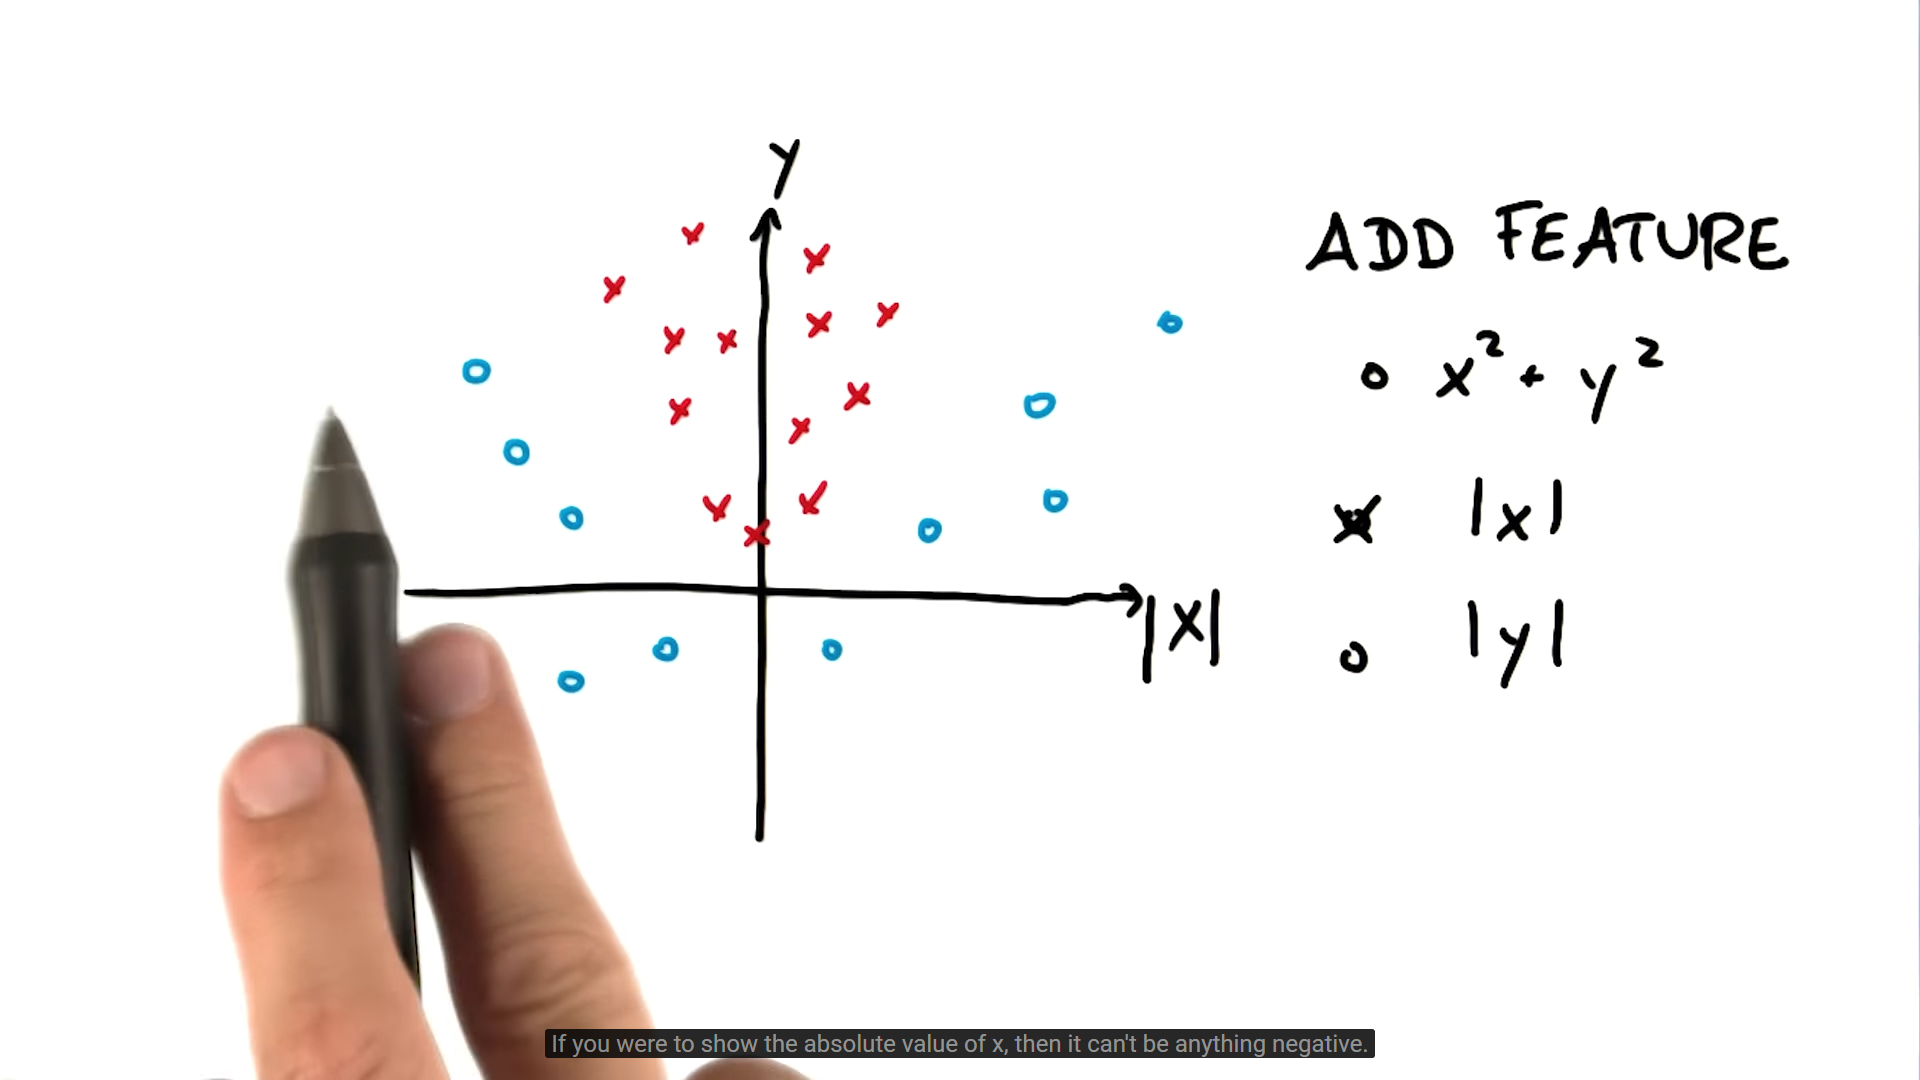 Y
ADD FEATURE
x² + y²
|x|
|X|
|y|
If you were to show the absolute value of x, then it can't be anything negative.